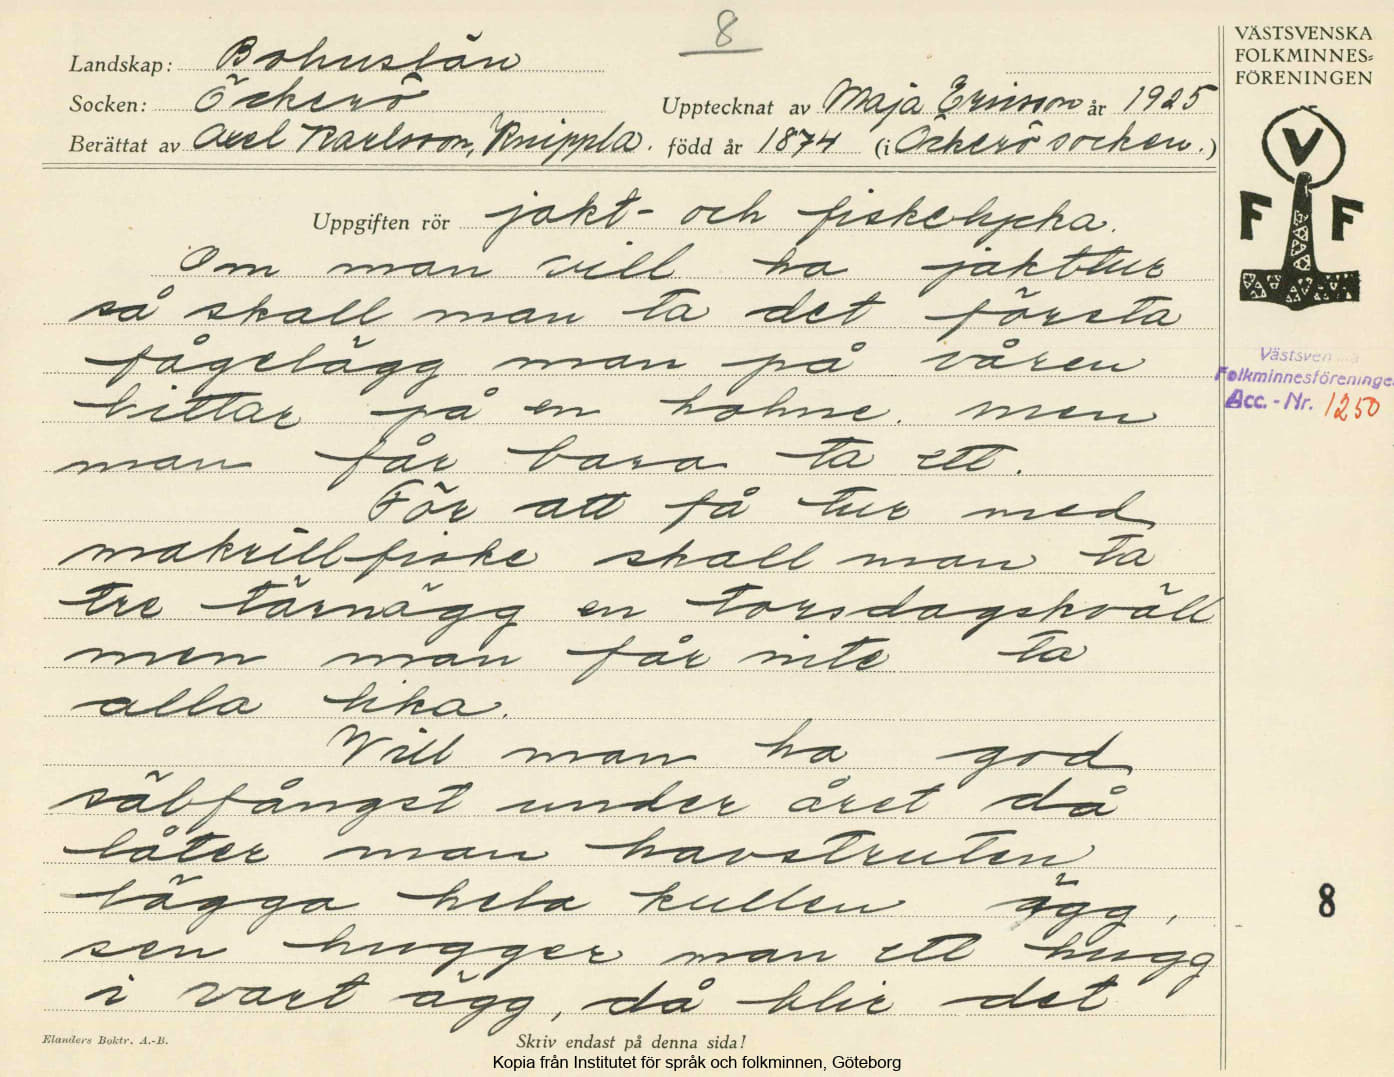 8
Landskap: Bohuslän
Socken: Öckerö
Upptecknat av Maja Ericson år 1925
Berättat av Axel Karlsson, Knippla. född år 1874 (i Öckerö socken.)
VÄSTSVENSKA
FOLKMINNES=
FÖRENINGEN
V
F F
Uppgiften rör jakt- och fiskelycka.
Om man vill ha jakttur
så skall man ta det första
fågelägg man på våren
hittar på en holme. men
man får bara ta ett.
För att få tur med
makrillfiske skall man ta
tre tärnägg en torsdagskväll
men man får inte ta
alla lika.
Will man ha god
sälfångst under året då
låter man havstruten
lägga hela kullen ägg,
sen hugger man ett hugg
i vart ägg, då blir det
Västsvenska
Folkminnesföreningen
Acc.-Nr. 1250
8
Elanders Boktr. A.-B.
Skriv endast på denna sida!
Kopia från Institutet för språk och folkminnen, Göteborg